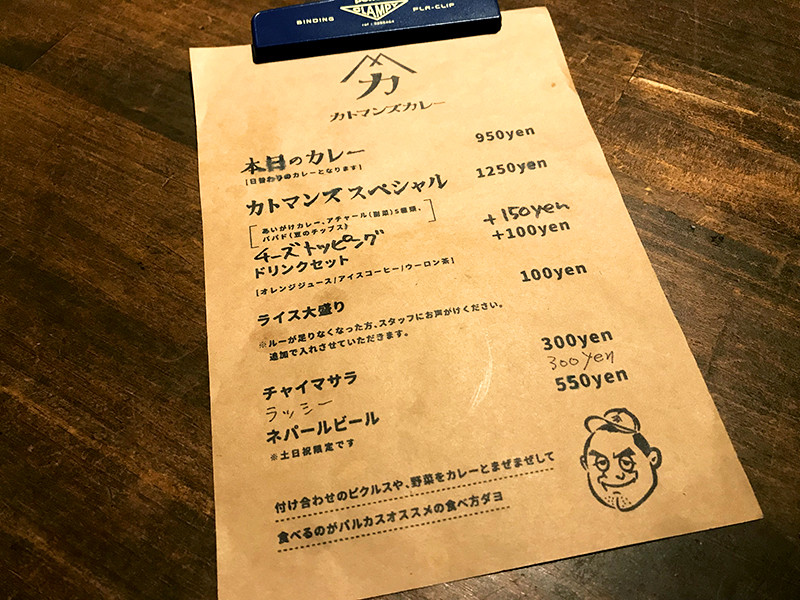 PLAMPY
BINDING
PLA-CLIP
カ
カトマンズカレー
本日のカレー 950yen
[日替わりのカレーとなります]
カトマンズ スペシャル 1250yen
[あいがけカレー、アチャール(副菜)5種類、
パパド(豆のチップス)]
チーズトッピング +150yen
ドリンクセット +100yen
[オレンジジュース/アイスコーヒー/ウーロン茶]
ライス大盛り 100yen
※ルーが足りなくなった方、スタッフにお声がけください。
追加で入れさせていただきます。
チャイマサラ 300yen
ラッシー 300yen
ネパールビール 550yen
※土日祝限定です
付け合わせのピクルスや、野菜をカレーとまぜまぜして
食べるのがバルカスオススメの食べ方ダヨ